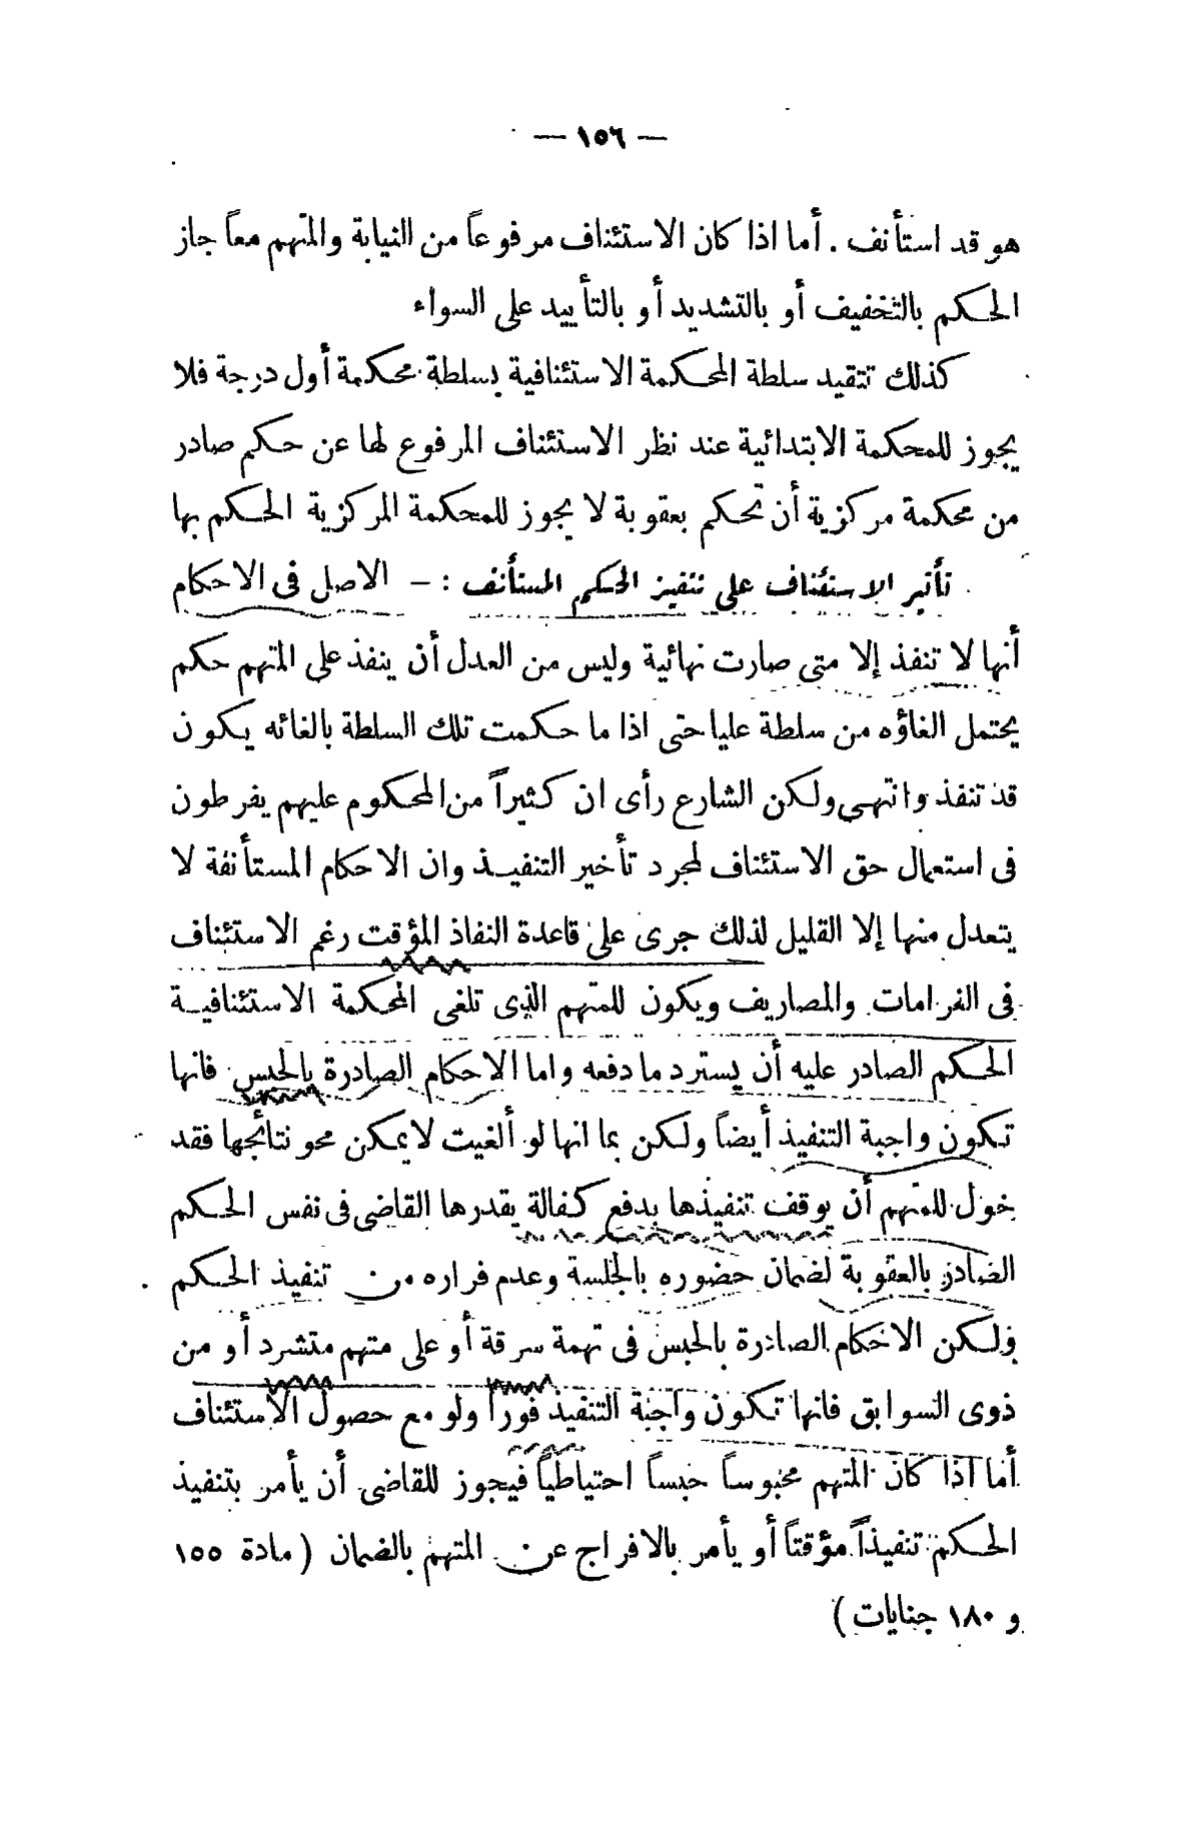 — ١٥٦ —
هو قد استأنف . أما اذا كان الاستئناف مرفوعاً من النيابة والمتهم معاً جاز
الحكم بالتخفيف أو بالتشديد أو بالتأييد على السواء
كذلك تتقيد سلطة المحكمة الاستئنافية بسلطة محكمة أول درجة فلا
يجوز للمحكمة الابتدائية عند نظر الاستئناف المرفوع لها عن حكم صادر
من محكمة مركزية أن تحكم بعقوبة لا يجوز للمحكمة المركزية الحكم بها
تأثير الاستئناف على تنفيذ الحكم المستأنف : — الاصل فى الاحكام
أنها لا تنفذ إلا متى صارت نهائية وليس من العدل أن ينفذ على المتهم حكم
يحتمل الغاؤه من سلطة عليا حتى اذا ما حكمت تلك السلطة بالغائه يكون
قد تنفذ وانتهى ولكن الشارع رأى ان كثيراً من المحكوم عليهم يفرطون
فى استعمال حق الاستئناف لمجرد تأخير التنفيذ وان الاحكام المستأنفة لا
يتعدل منها إلا القليل لذلك جرى على قاعدة النفاذ المؤقت رغم الاستئناف
فى الغرامات والمصاريف ويكون للمتهم الذى تلغى المحكمة الاستئنافية
الحكم الصادر عليه أن يسترد ما دفعه واما الاحكام الصادرة بالحبس فانها
تكون واجبة التنفيذ أيضاً ولكن بما انها لو ألغيت لا يمكن محو نتائجها فقد
خول للمتهم أن يوقف تنفيذها بدفع كفالة يقدرها القاضى فى نفس الحكم
الصادر بالعقوبة لضمان حضوره بالجلسة وعدم فراره من تنفيذ الحكم
ولكن الاحكام الصادرة بالحبس فى تهمة سرقة أو على متهم متشرد أو من
ذوى السوابق فانها تكون واجبة التنفيذ فوراً ولو مع حصول الاستئناف
أما اذا كان المتهم محبوساً حبساً احتياطياً فيجوز للقاضى أن يأمر بتنفيذ
الحكم تنفيذاً مؤقتاً أو يأمر بالافراج عن المتهم بالضمان ( مادة ١٥٥
و ١٨٠ جنايات )